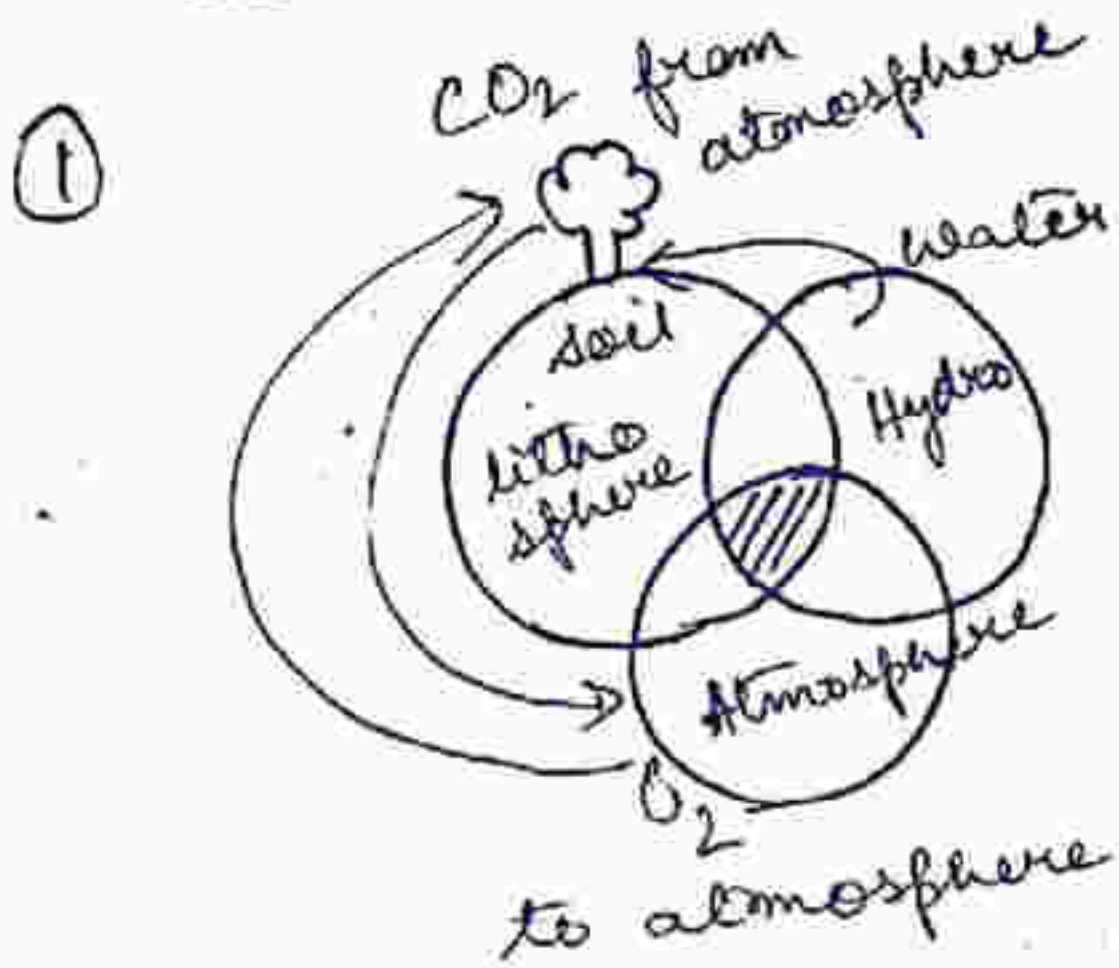 1
CO2 from
atmosphere
Water
soil
litho
sphere
Hydro
Atmosphere
O2
to atmosphere